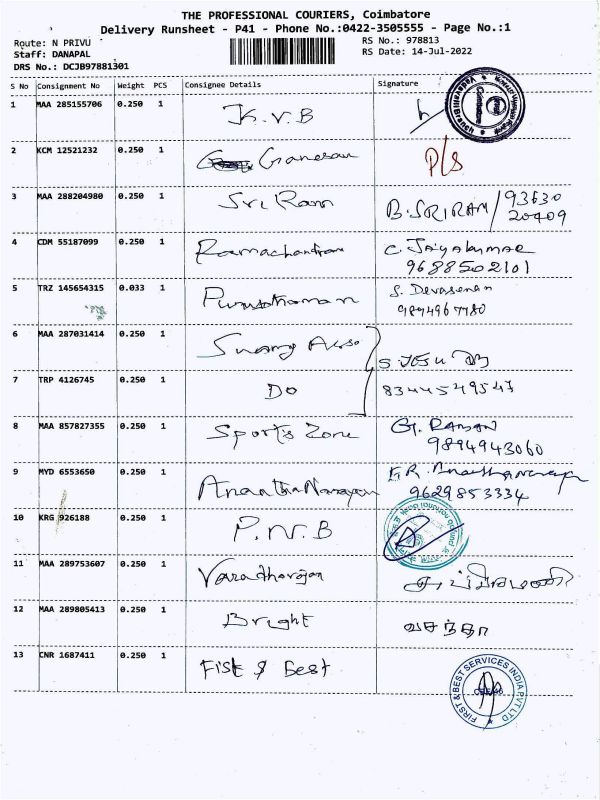 THE PROFESSIONAL COURIERS, Coimbatore
Delivery Runsheet - P41 - Phone No.:0422-3505555 - Page No.:1
Route: N PRIVU RS No.: 978813
Staff: DANAPAL RS Date: 14-Jul-2022
DRS No.: DCJB97881301
S No Consignment No Weight PCS Consignee Details Signature
1 MAA 285155706 0.250 1 K.V.B
2 KCM 12521232 0.250 1 Ganesan P/S
3 MAA 288204980 0.250 1 Sri Ram B.SRIRAM/93630
20409
4 CDM 55187099 0.250 1 Ramachandran C. Jayakumar
9688502101
5 TRZ 145654315 0.033 1 Purusothaman S. Devasenan
9894967780
6 MAA 287031414 0.250 1
7 TRP 4126745 0.250 1 Do 8344549547
8 MAA 857827355 0.250 1 Sports Zone G. RAMAN
9894943060
9 MYD 6553650 0.250 1 Anantha Narayan
9629853334
10 KRG 926188 0.250 1 P.N.B
11 MAA 289753607 0.250 1 Varatharajan
12 MAA 289805413 0.250 1 Bright வசந்தா
13 CNR 1687411 0.250 1 Fist & Best
FIRST & BEST SERVICES INDIA PVT LTD